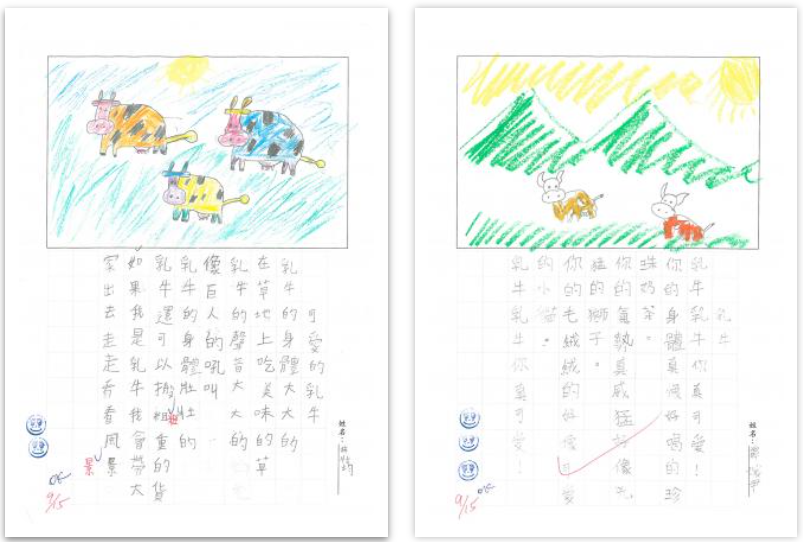 可愛的乳牛
乳牛的身體大大的
在草地上吃美味的草
乳牛的聲音大大的
像巨人的吼叫
乳牛的身體壯壯的
乳牛還可以搬粗重的貨
如果我是乳牛我會帶大
家出去走走看看風景
粗
景
姓名：
OK
9/15
乳牛
乳牛乳牛你真可愛！
你的身體真像好喝的珍
珠奶茶。
你的氣勢真威猛好像
猛的獅子。
你的毛絨絨的好像可愛
的小貓。
乳牛乳牛你真可愛！
姓名：
OK
9/15